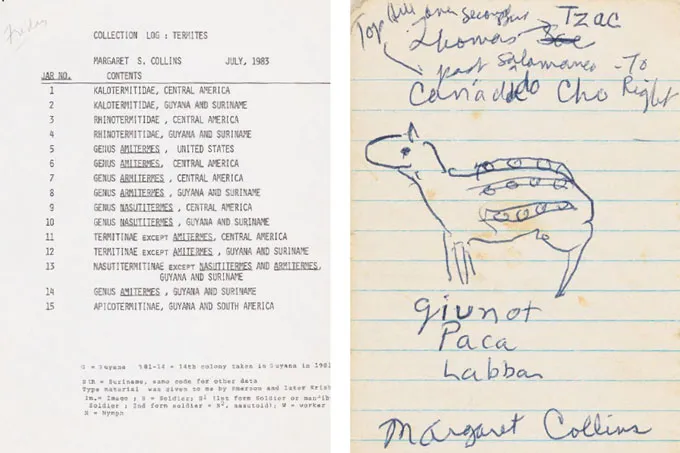 Fredas
COLLECTION LOG : TERMITES
MARGARET S. COLLINS JULY, 1983
JAR NO. CONTENTS
1 KALOTERMITIDAE, CENTRAL AMERICA
2 KALOTERMITIDAE, GUYANA AND SURINAME
3 RHINOTERMITIDAE , CENTRAL AMERICA
4 RHINOTERMITIDAE, GUYANA AND SURINAME
5 GENUS AMITERMES , UNITED STATES
6 GENUS AMITERMES, CENTRAL AMERICA
7 GENUS ARMITERMES , CENTRAL AMERICA
8 GENUS ARMITERMES , GUYANA AND SURINAME
9 GENUS NASUTITERMES , CENTRAL AMERICA
10 GENUS NASUTITERMES , GUYANA AND SURINAME
11 TERMITINAE EXCEPT AMITERMES, CENTRAL AMERICA
12 TERMITINAE EXCEPT AMITERMES , GUYANA AND SURINAME
13 NASUTITERMITINAE EXCEPT NASUTITERMES AND ARMITERMES,
GUYANA AND SURINAME
14 GENUS AMITERMES , GUYANA AND SURINAME
15 APICOTERMITINAE, GUYANA AND SOUTH AMERICA
G = Guyana %81-14 = 14th colony taken in Guyana in 1981
SUR = Suriname, same code for other data
Type material was given to me by Emerson and later
Im.= Imago ; S = Soldier; (1st form Soldier or
Soldier ; 2nd form soldier = nasutoid); W = worker
N = Nymph
Top over second
Tzac
Thomas
past Salamanca - To
Right
Cho
giunot
Paca
Labba
Margaret Collins